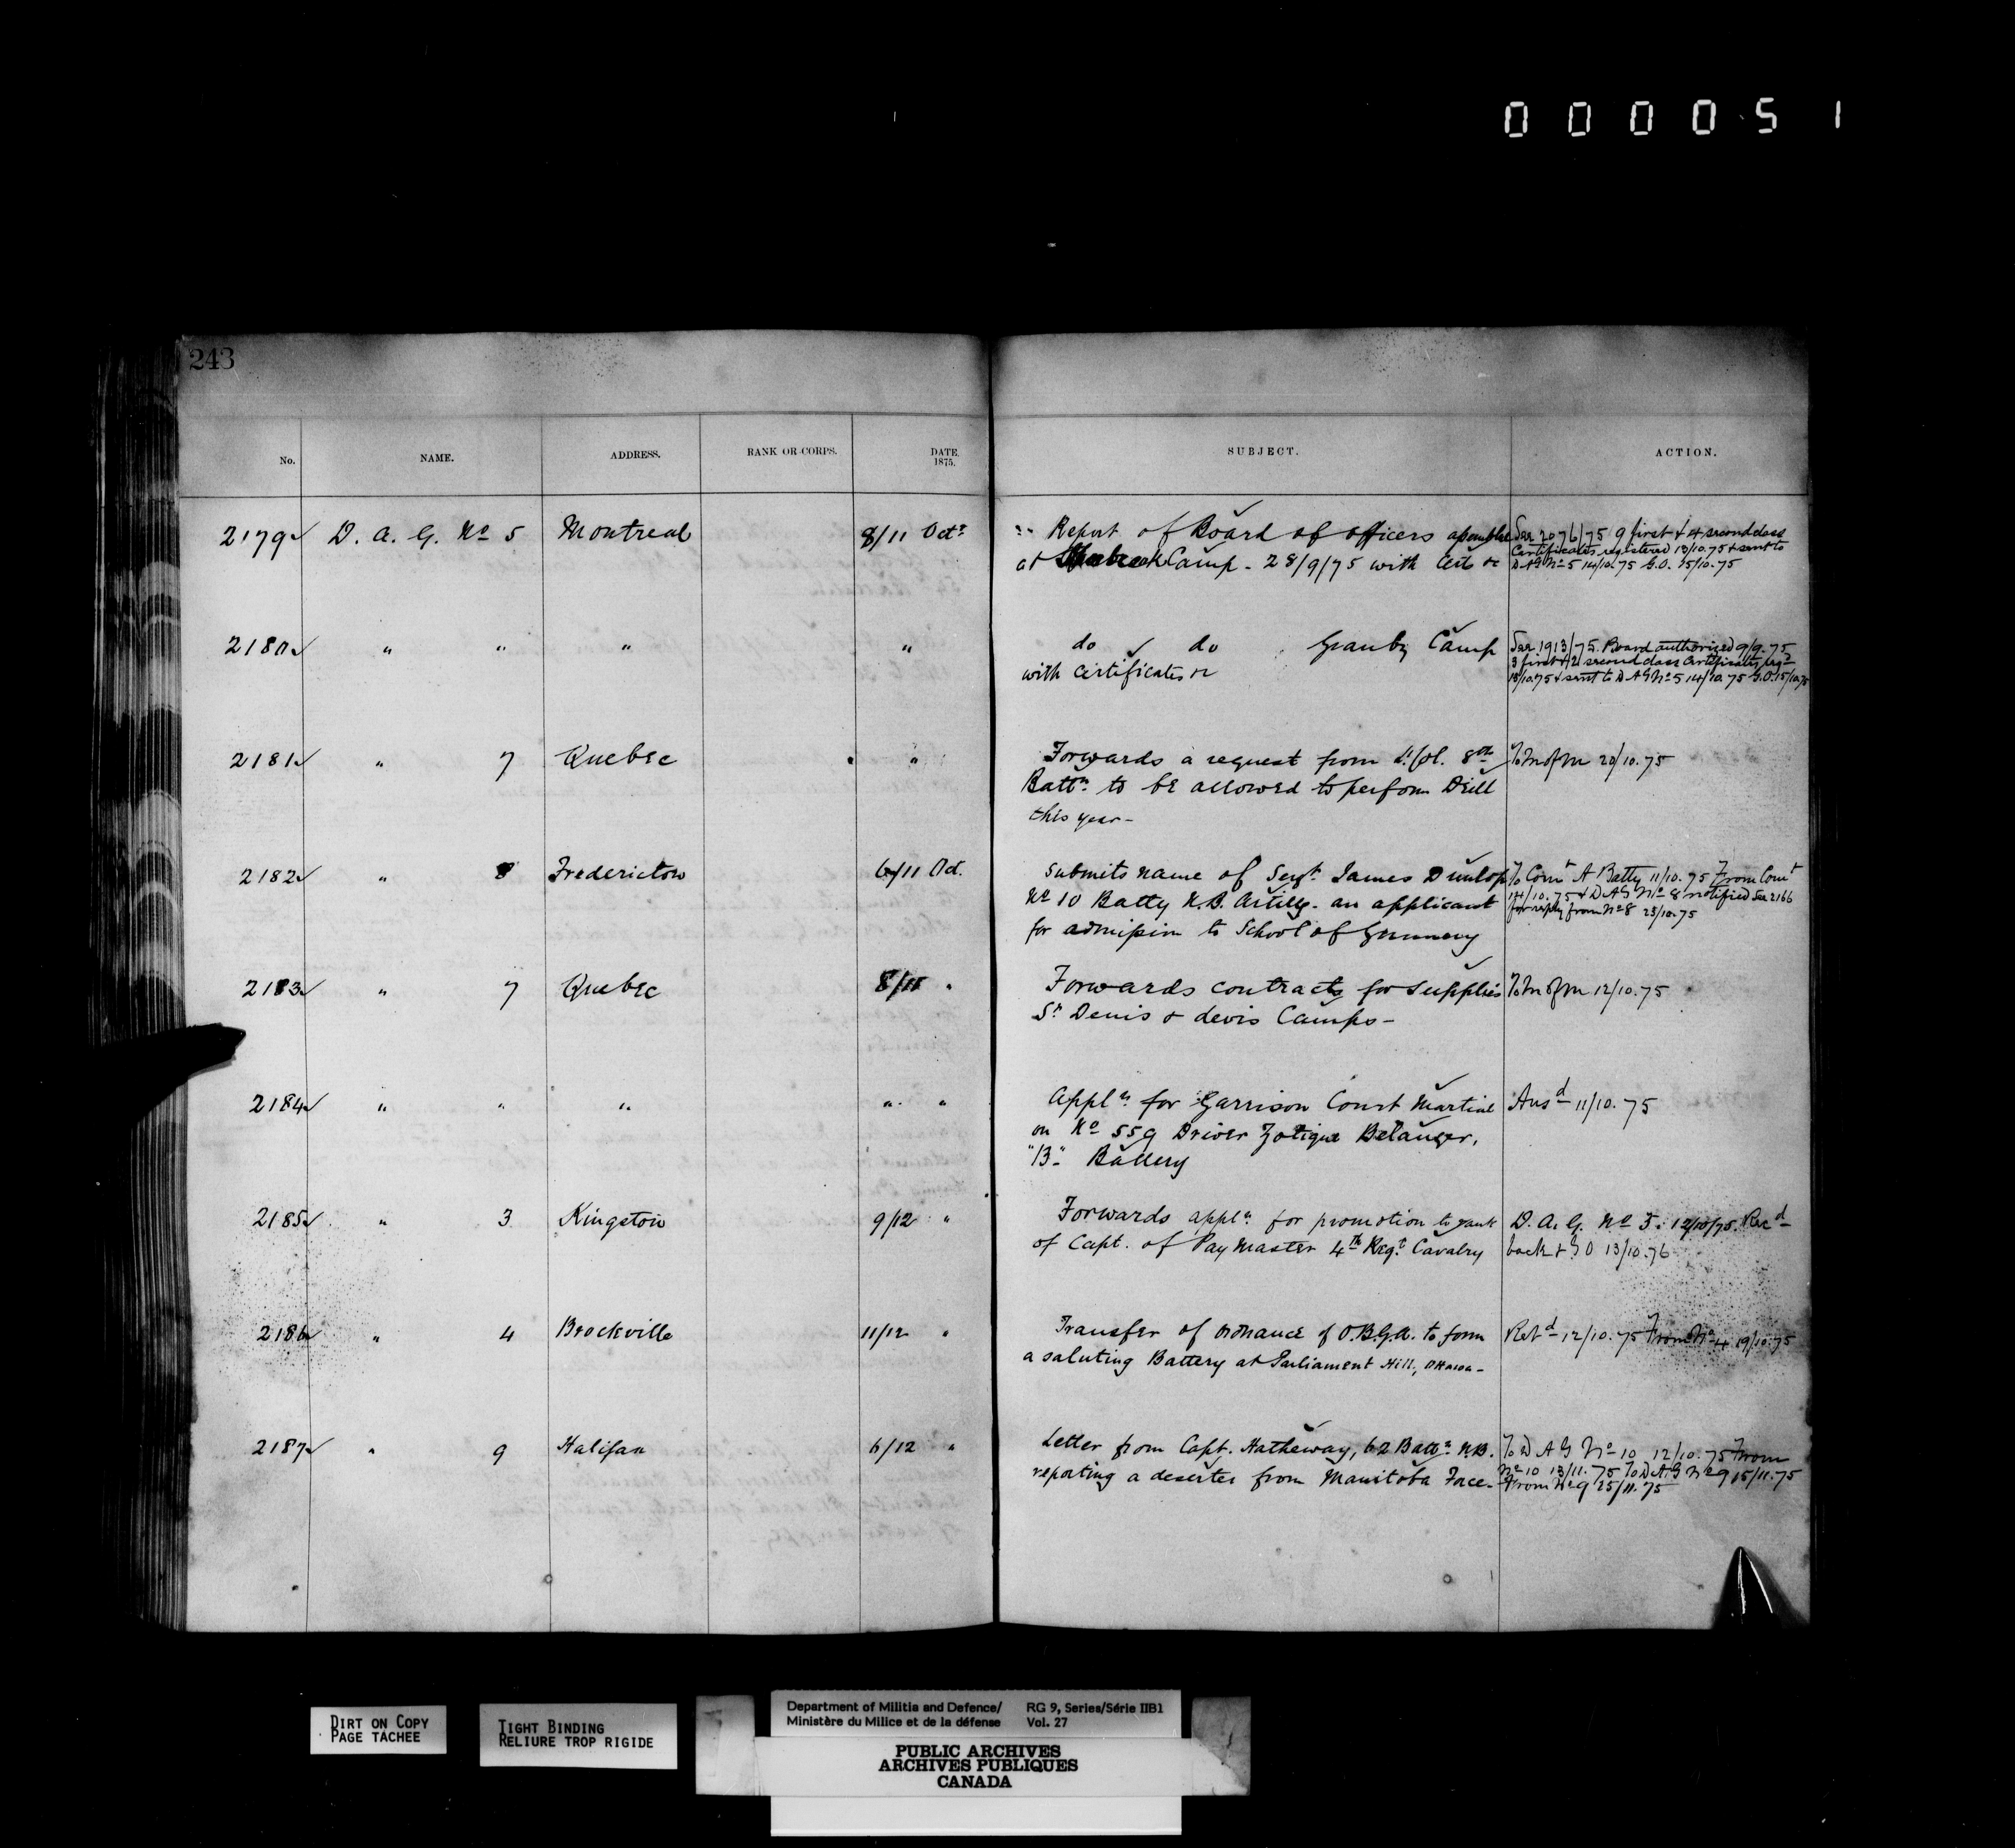 000051
243
No. NAME. ADDRESS. RANK OR CORPS. DATE. 1875. SUBJECT. ACTION.
2179 D. A. G. No 5 Montreal 8/11 Octr Report of Board of officers assembled
at Camp - 28/9/75 with Certs &c
See 2076/75 9 first & 4 second class
Certificates registered 13/10.75 & sent to
D A G No 5 14/10.75 G.O. 15/10.75
2180 " " " " do do Granby Camp
with Certificates &c
See 1913/75. Board authorized 9/9.75
3 first & 2 second class Certificates regd
13/10.75 & sent to D A G No 5 14/10.75 G.O. 15/10.75
2181 " 7 Quebec " Forwards a request from Lt. Col. 8th
Battn. to be allowed to perform Drill
this year -
To M of M 20/10.75
2182 " 8 Fredericton 6/11 Oct. Submits name of Sergt. James Dunlop
No 10 Batty N.B. Artilly. an applicant
for admission to School of Gunnery
To Comt A Batty 11/10.75 From Comt
14/10.75 & D A G No 8 notified See 2166
for reply from No 8 25/10.75
2183 " 7 Quebec 8/11 " Forwards contracts for supplies
St. Denis & Levis Camps -
To M of M 12/10.75
2184 " " " " " Appln. for Garrison Court Martial
on No 559 Driver Zotique Belanger,
"B" Battery
Ansd 11/10.75
2185 " 3 Kingston 9/12 " Forwards appln. for promotion to rank
of Capt. of Pay Master 4th Regt. Cavalry
D. A. G. No 3. 12/10/75. Recd
back & G O 13/10.76
2186 " 4 Brockville 11/12 " Transfer of Ordnance of O.B.G.A. to form
a saluting Battery at Parliament Hill, Ottawa -
Retd 12/10.75 From No 4 19/10.75
2187 " 9 Halifax 6/12 " Letter from Capt. Hatheway, 62 Battn. N.B.
reporting a deserter from Manitoba Force -
To D A G No 10 12/10.75 From
No 10 13/11.75 To D.A.G No 9 15/11.75
From No 9 25/11.75
DIRT ON COPY
PAGE TACHEE
TIGHT BINDING
RELIURE TROP RIGIDE
Department of Militia and Defence/ RG 9, Series/Série IIB1
Ministère du Milice et de la défense Vol. 27
PUBLIC ARCHIVES
ARCHIVES PUBLIQUES
CANADA